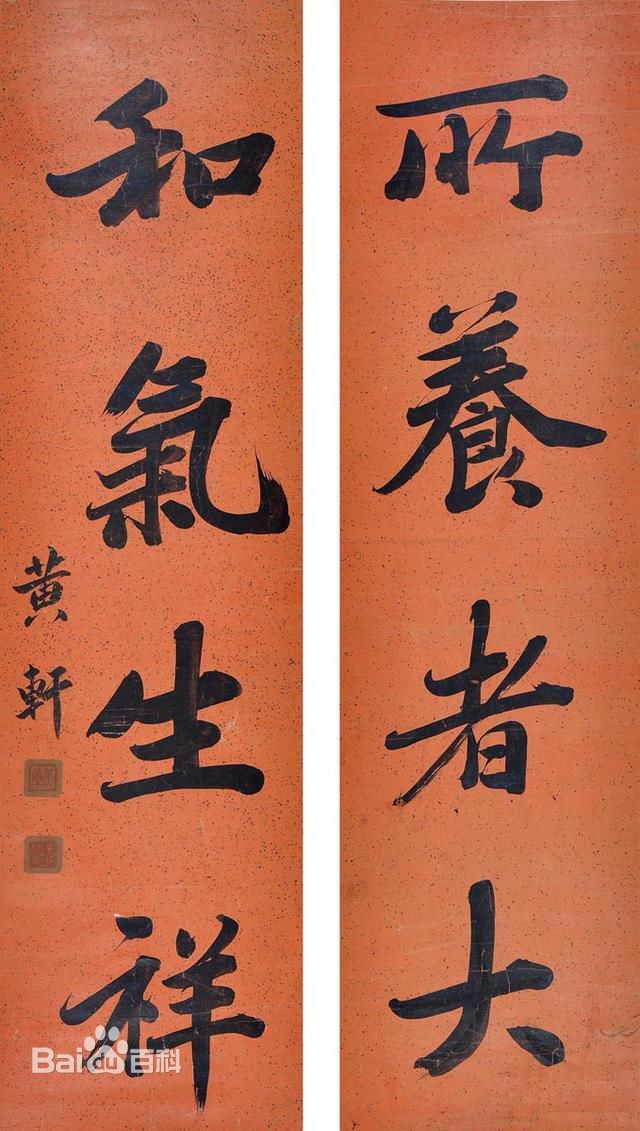 所養者大
和氣生祥
黄軒
Bai百科